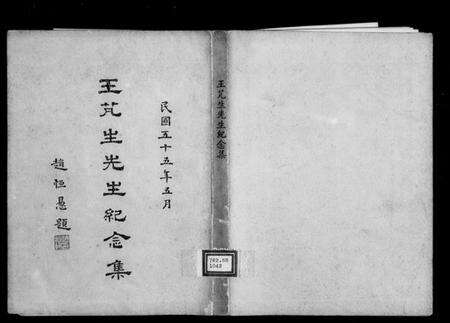 民國五十五年五月
王芃生先生紀念集
趙恒惖題
王芃生先生紀念集
782.88
1042